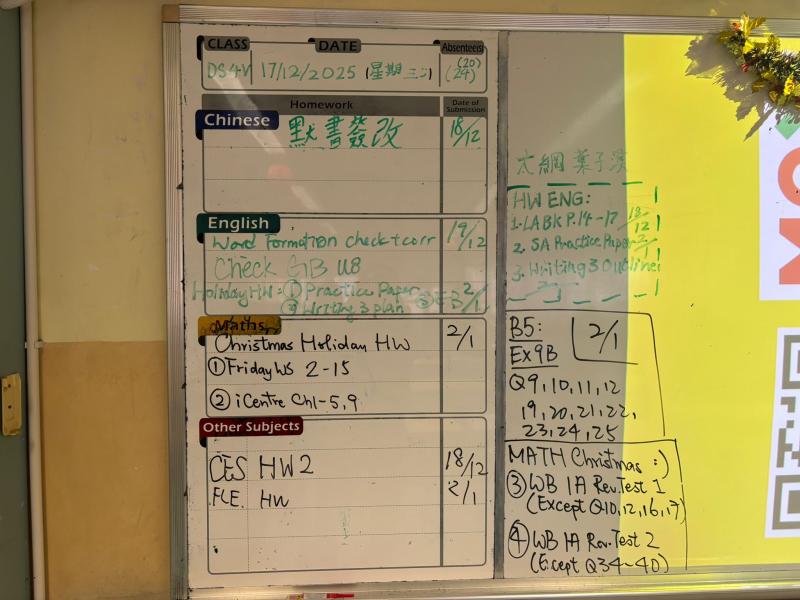 CLASS DATE Absenteers
17/12/2025 (星期三) (20) (24)
Homework Date of Submission
Chinese 默書簽改 18/12
English Word Formation check+corr 19/12
Check GB U8
Holiday HW: ① Practice Paper 2/1
② Writing 3 plan
Maths Christmas Holiday HW 2/1
① Friday WS 2-15
② iCentre Ch1-5,9
Other Subjects
CES HW2 18/12
F.L.E. HW 2/1
HW ENG:
1. LA BK P.14-17 18/12
2. SA Practice Paper 2/1
3. Writing 3 Outline
B5: 2/1
Ex9B
Q9,10,11,12
19,20,21,22,
23,24,25
MATH Christmas :)
③ WB 1A Rev. Test 1
(Except Q10,12,16,17)
④ WB 1A Rev. Test 2
(Except Q34~40)